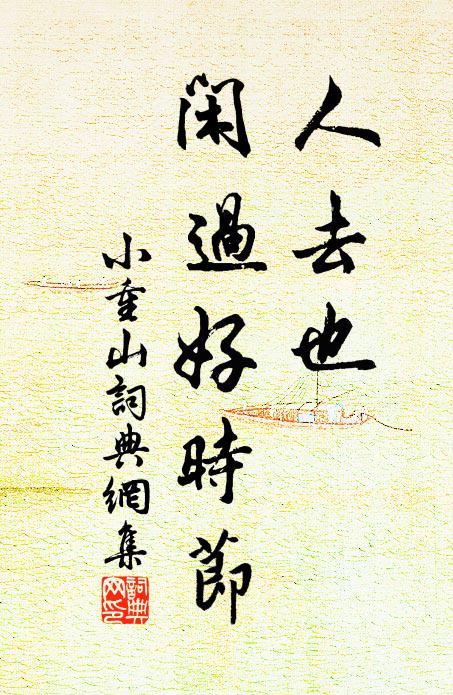 人去也
閑過好時節
小重山詞典網集
詞典
网印